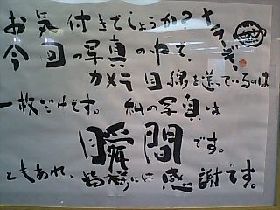 お気付きでしょうか？
今回の写真の中で、
カメラ目線を送っているのは
一枚だけです。 私の写真は
瞬間です。
ともあれ、 に感謝です。